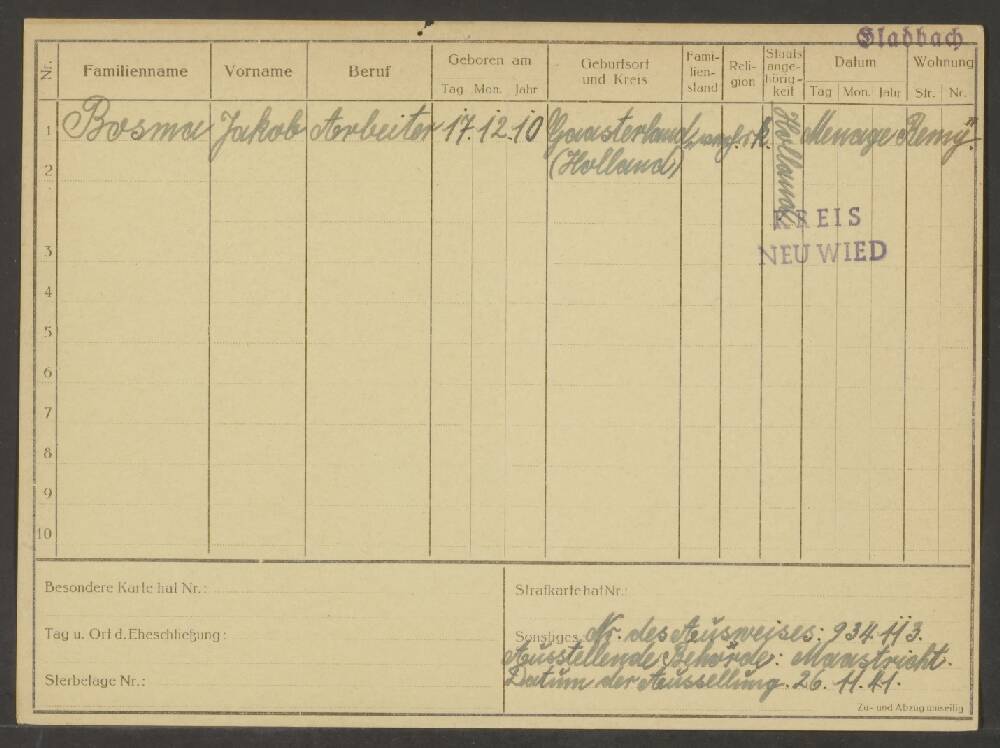 Gladbach
Nr. Familienname Vorname Beruf Geboren am Geburtsort und Kreis Fami-lien-stand Reli-gion Staats-ange-hörig-keit Datum Wohnung
Tag Mon. Jahr Tag Mon. Jahr Str. Nr.
1 Bosma Jakob Arbeiter 17.12.10 Gaasterland rk. Holland Menage Remy"
2 (Holland)
KREIS
3 NEUWIED
4
5
6
7
8
9
10
Besondere Karte hat Nr.:
Tag u. Ort d. Eheschließung:
Sterbelage Nr.:
Strafkarte hat Nr.:
Sonstiges Nr. des Ausweises: 934113.
Ausstellende Behörde: Maastricht.
Datum der Aussellung. 26.11.41.
Zu- und Abzug umseitig